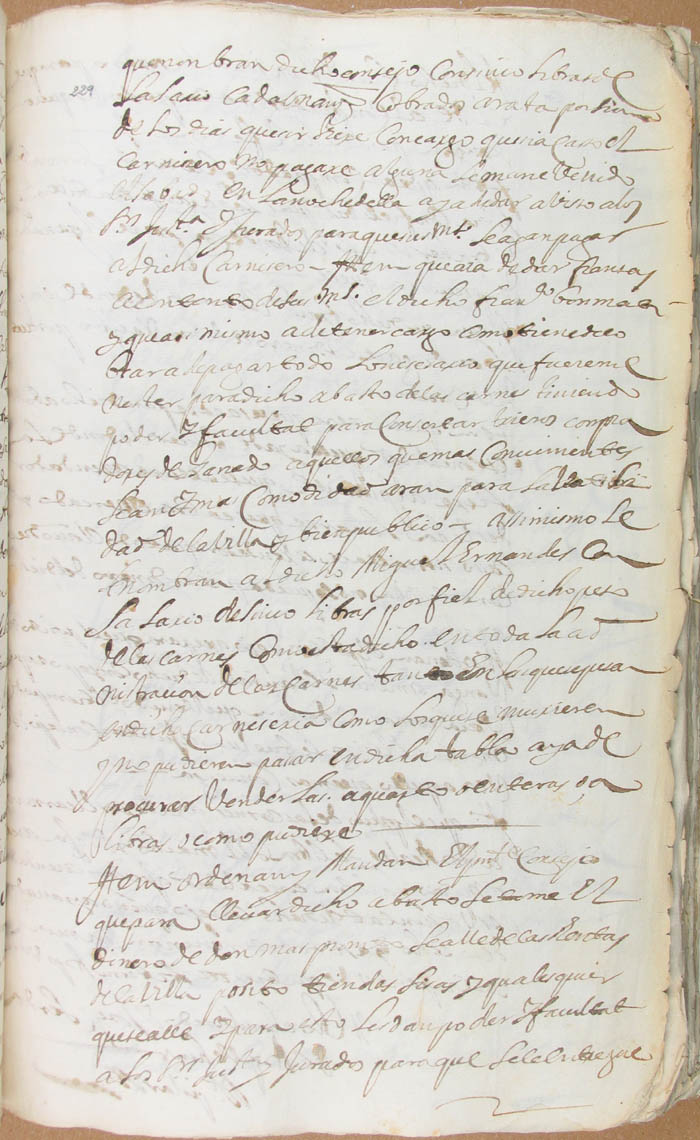 229
que nonbran dicho consejo con sinco libras de
salario cada un año Cobrados a rata por tiempo
de los dias que sirviere Con cargo que si a caso el
Carnisero no pagare alguna semana Venido
en la noche della aya de dar aviso a los
Srs Justa y Jurados para que sus Mds le agan pagar
al dicho Carnisero Ittem que aya de dar fiansas
a contento de sus Mds el dicho
y que asi mismo a de tener cargo como tiene dicho
de pagar todo lo nesesario que fuere me
nester para dicho abasto de las carnes tiniendo
poder y facultat para Consertar tieros compra
dores de ganado aquellos que mas Convinientes
sean y mas Comodidad aran para la
dad de la Villa y bien publico assimismo le
nhombran al dicho Miguel Ernandes Con
salario de sinco libras por fiel de dicho peso
de las carnes Como esta dicho en toda la ad
nistracion de las Carnes tanto En las que se pesan
en dicha Carneseria Como los que se murieren
y no pudieren pasar en dicha tabla aya de
procurar Venderlas a quarto o enteras o a
libras o como pudiere
Ittem ordenan y Mandan El Justa Consejo
que para llevar dicho abasto se tome El
dinero de don mas promto se alle de las Rentas
de la Villa posito tiendas sisas y qualesquier
que se alle y para esto les dan poder y facultat
a los Srs Justa y Jurados para que se le entregue